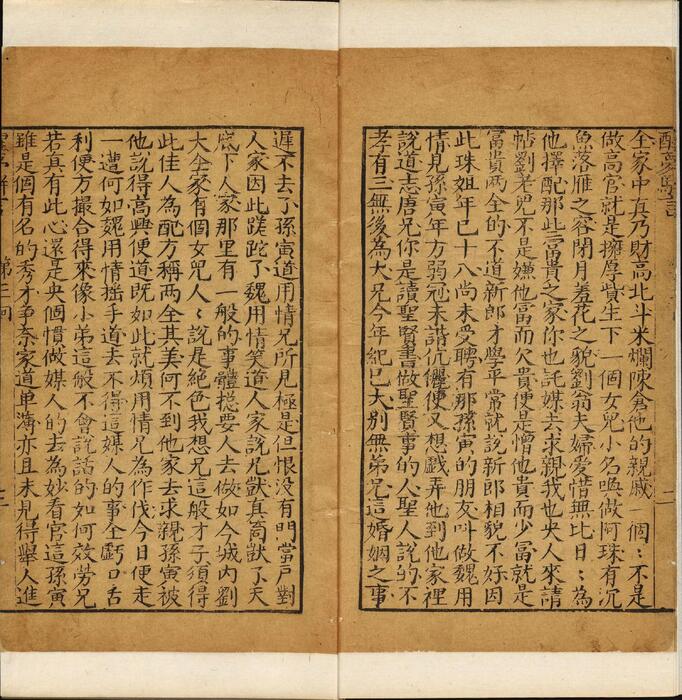 醒夢駢言
二
全家中真乃財高北斗米爛陳倉他的親戚一個〻不是
做高官就是擁厚貲生下一個女兒小名喚做阿珠有沉
魚落雁之容閉月羞花之貌劉翁夫婦愛惜無比日〻為
他擇配那些富貴之家你也託媒去求親我也央人來請
帖劉老兒不是嫌他富而欠貴便是憎他貴而少富就是
富貴兩全的不道新郎才學平常就說新郎相貌不好因
此珠姐年已十八尚未受聘有那孫寅的朋友叫做魏用
情見孫寅年方弱冠未諧伉儷便又想戲弄他到他家裡
說道志唐兄你是讀聖賢書做聖賢事的人聖人說的不
孝有三無後為大兄今年紀已大別無弟兄這婚姻之事
遲不去了孫寅道用情兄所見極是但恨沒有門當戶對
人家因此蹉跎了魏用情笑道人家說兄獃真箇獃了天
底下人家那里有一般的事體摠要人去做如今城內劉
大全家有個女兒人〻說是絕色我想兄這般才子須得
此佳人為配方稱兩全其美何不到他家去求親孫寅被
他說得高興便道既如此就煩用情兄為作伐今日便走
一遭何如魏用情搖手道去不得這媒人的事全虧口舌
利便方撮合得來像小弟這般不會說話的如何效勞兄
若真有此心還是央個慣做媒人的去為妙看官這孫寅
雖是個有名的秀才爭奈家道单薄亦且未見得舉人進
第三回